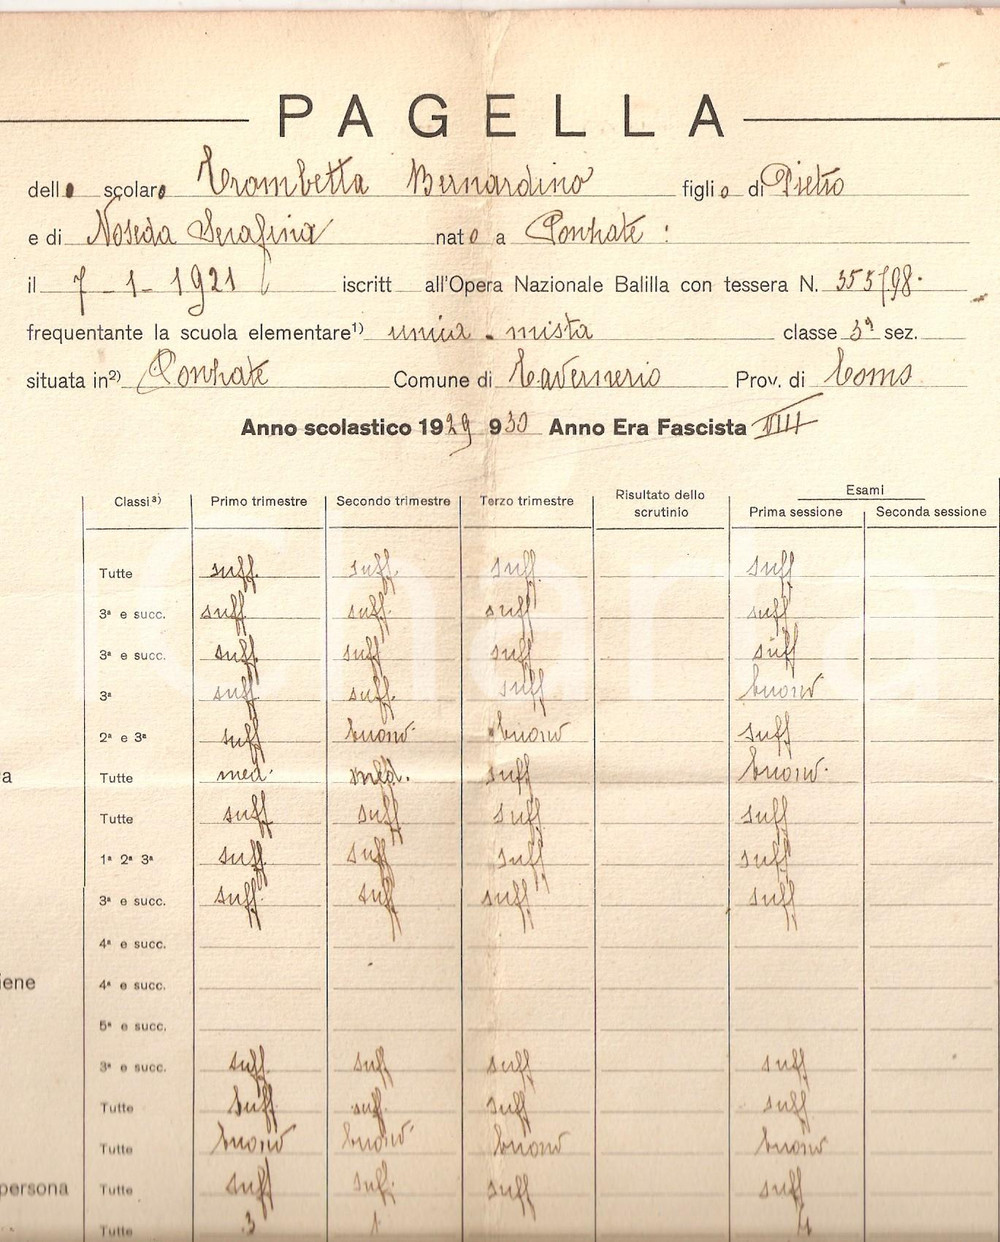 PAGELLA
dello scolaro Trombetta Bernardino figlio di Pietro
e di Noseda Serafina nato a Ponzate :
il 7-1-1921 iscritt all'Opera Nazionale Balilla con tessera N. 355798.
frequentante la scuola elementare¹⁾ unica - mista classe 3ª sez.
situata in²⁾ Ponzate Comune di Tavernerio Prov. di Como
Anno scolastico 1929 930 Anno Era Fascista VIII
Classi³⁾ Primo trimestre Secondo trimestre Terzo trimestre Risultato dello scrutinio Esami
Prima sessione Seconda sessione
Tutte suff. suff. suff. suff
3ª e succ. suff. suff. suff suff
3ª e succ. suff. suff suff suff
3ª suff suff. suff buono
2ª e 3ª suff buono. buono suff
a Tutte med. med. suff buono.
Tutte suff suff suff suff
1ª 2ª 3ª suff. suff suff suff
3ª e succ. suff. suff suff. suff
4ª e succ.
iene 4ª e succ.
5ª e succ.
3ª e succ. suff. suff suff suff
Tutte suff suff. suff suff
Tutte buono buono buono buono
persona Tutte suff suff. suff suff
Tutte 3 1
Charta